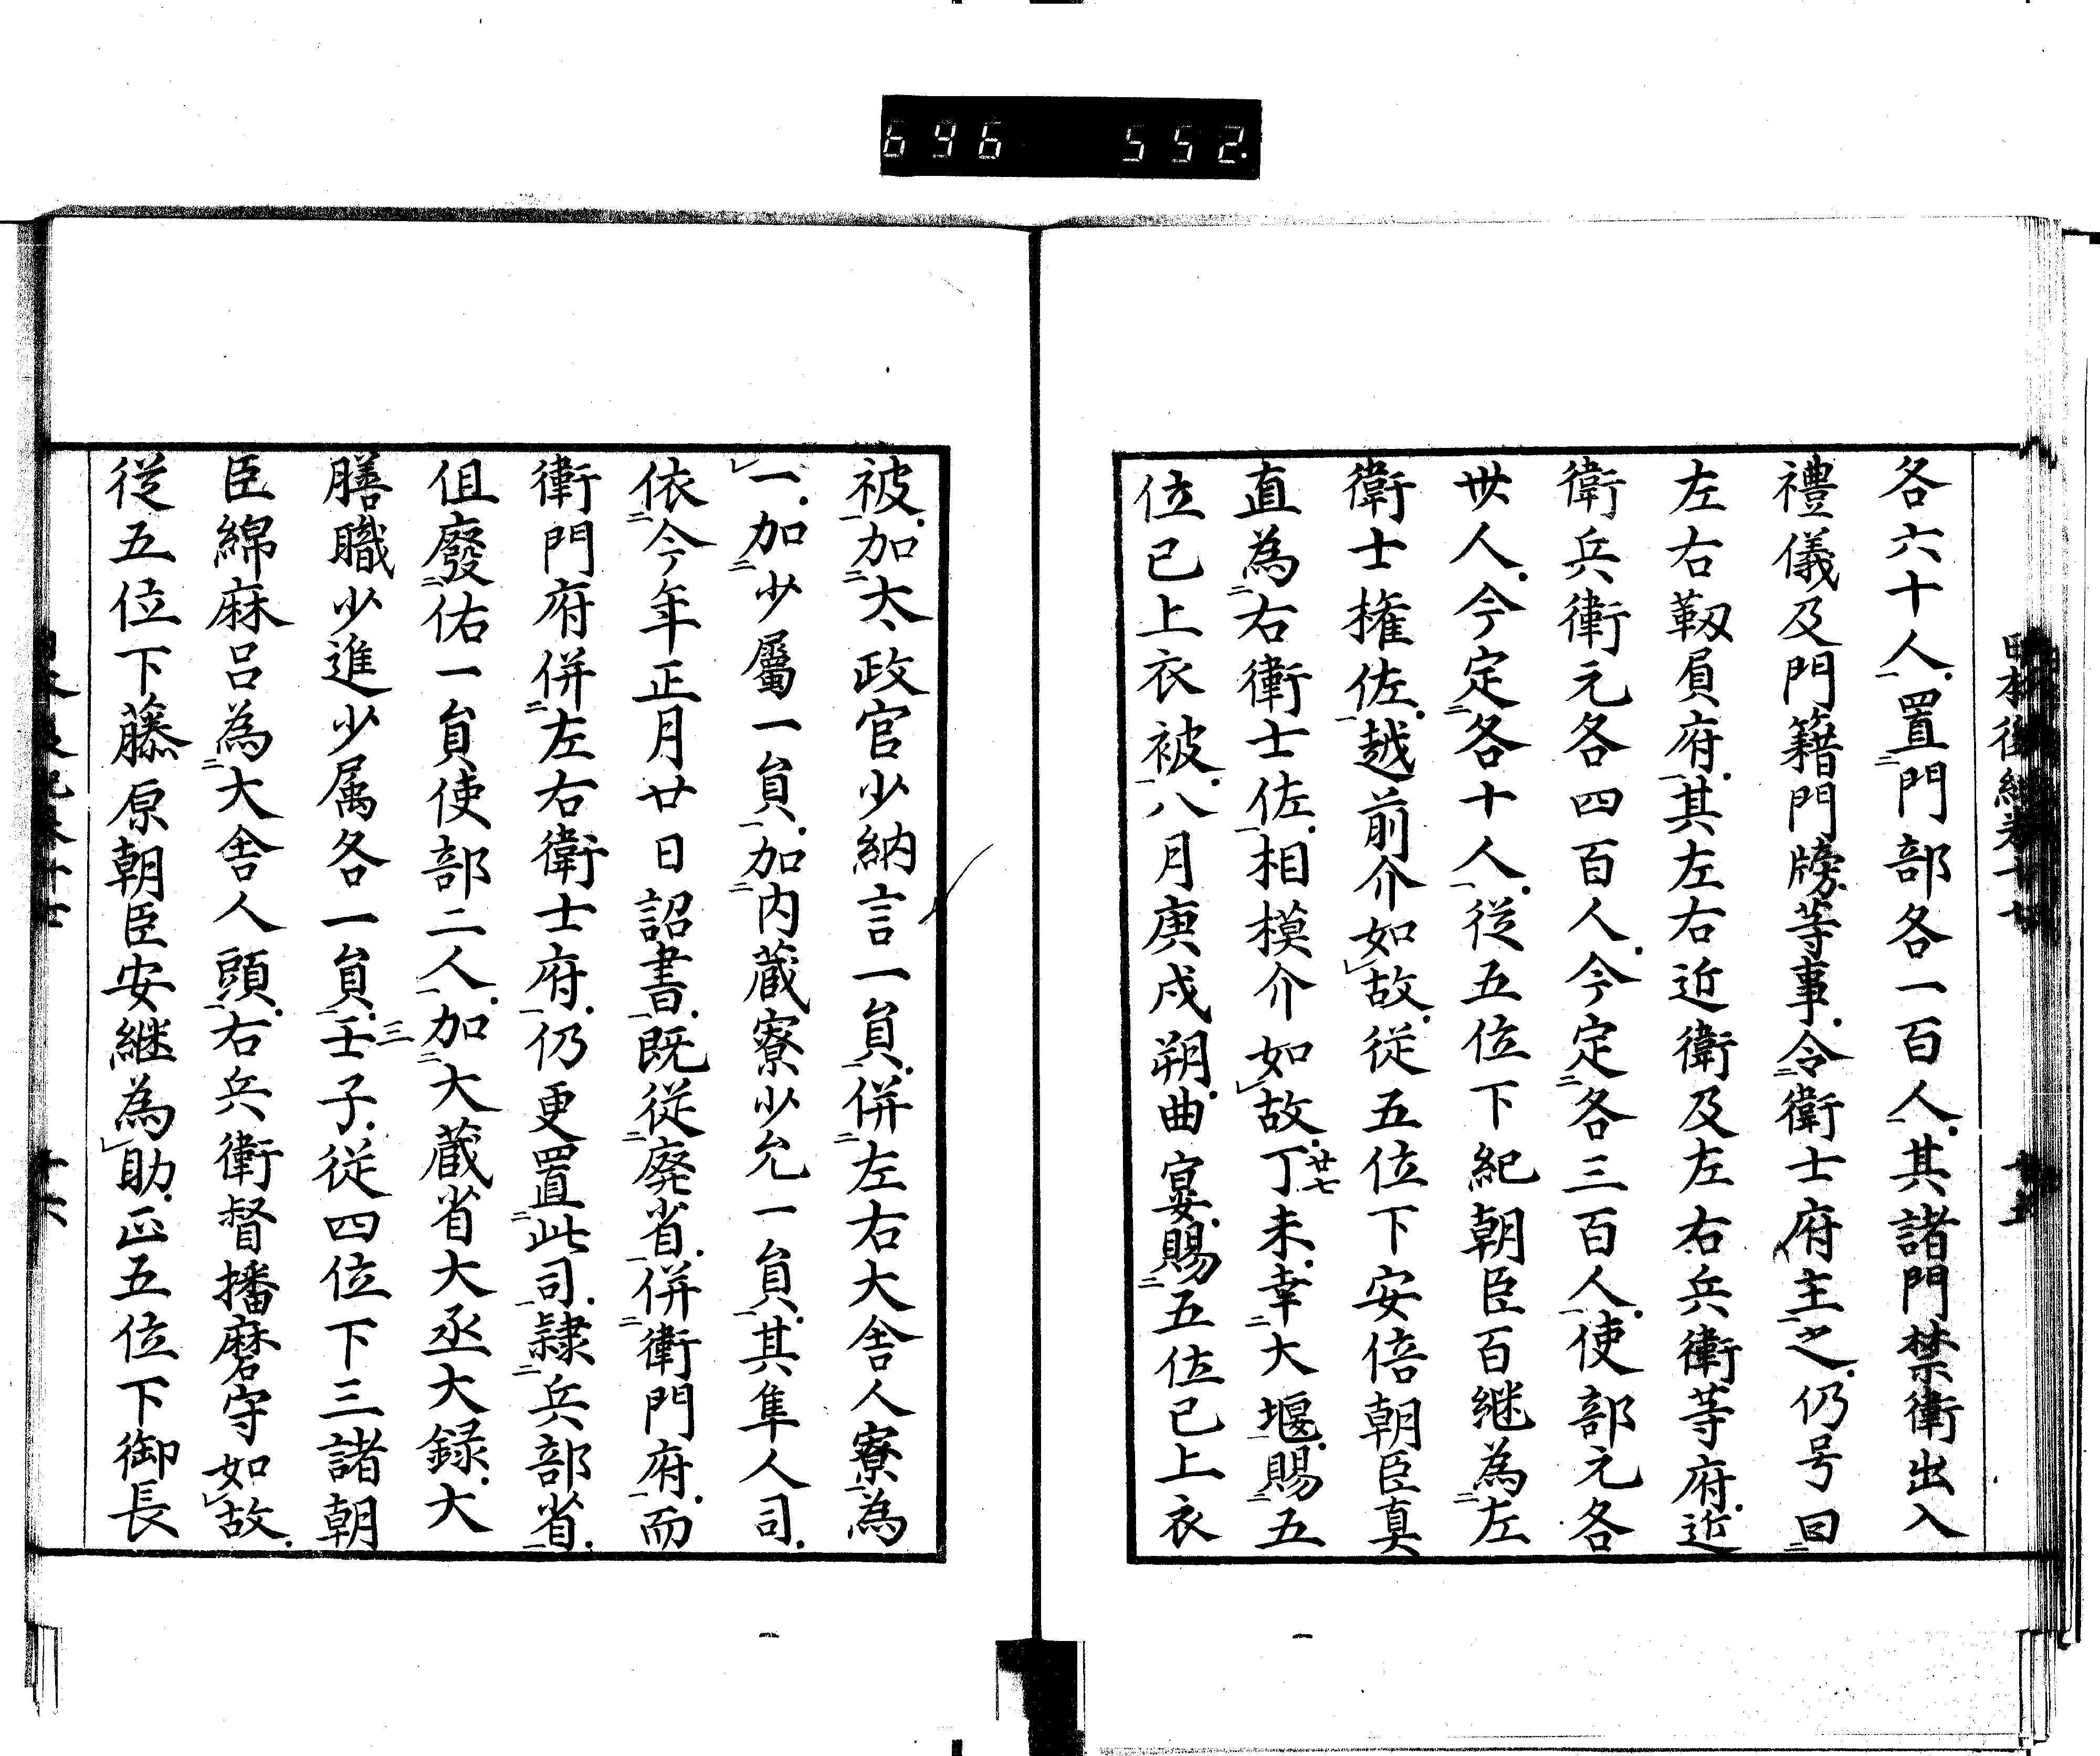 696 552
各六十人置門部各一百人其諸門禁衛出入
禮儀及門籍門牓等事令衛士府主之仍号曰
左右靱負府其左右近衛及左右兵衛等府近
衛兵衛元各四百人今定各三百人使部元各
丗人今定各十人従五位下紀朝臣百継為左
衛士権佐越前介如故従五位下安倍朝臣真
直為右衛士佐相模介如故丁未幸大堰賜五
廿七
位已上衣被八月庚戌朔曲宴賜五位已上衣
被加太政官少納言一員併左右大舎人寮為
一加少屬一員加内蔵寮少允一員其隼人司
依今年正月廿日詔書既従廃省併衛門府而
衛門府併左右衛士府仍更置此司隷兵部省
但廢佑一員使部二人加大蔵省大丞大録大
膳職少進少属各一員壬子従四位下三諸朝
三
臣綿麻呂為大舎人頭右兵衛督播磨守如故
従五位下藤原朝臣安継為助正五位下御長